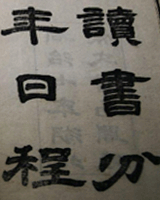 讀書分
年日程